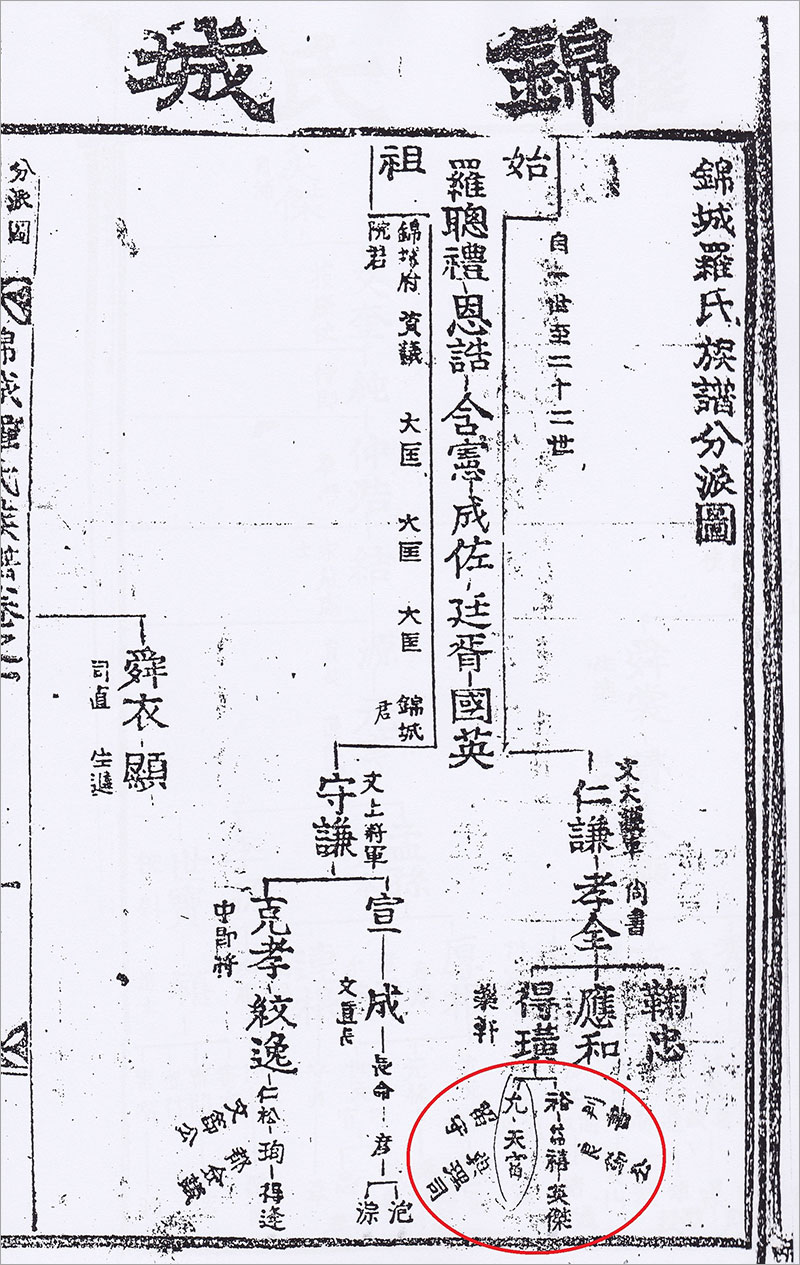 錦城
錦城羅氏族譜分派圖
自一世至二十二世
始祖
羅聰禮 恩誥 含憲 成佐 廷胥 國英
錦城府院君
資議
大匡
大匡
大匡
錦城君
仁謙 孝全
文大護軍
尙書
鞠忠
應和
得璜
藥軒
裕 翁禧 英傑
允 天富
守謙
文上將軍
宣 成 長命 彦
文直長
淙
克孝 紋逸 仁松 珣 得逢
中郎將
舜衣 顯
司直
生進
分派圖
錦城羅氏族譜卷之